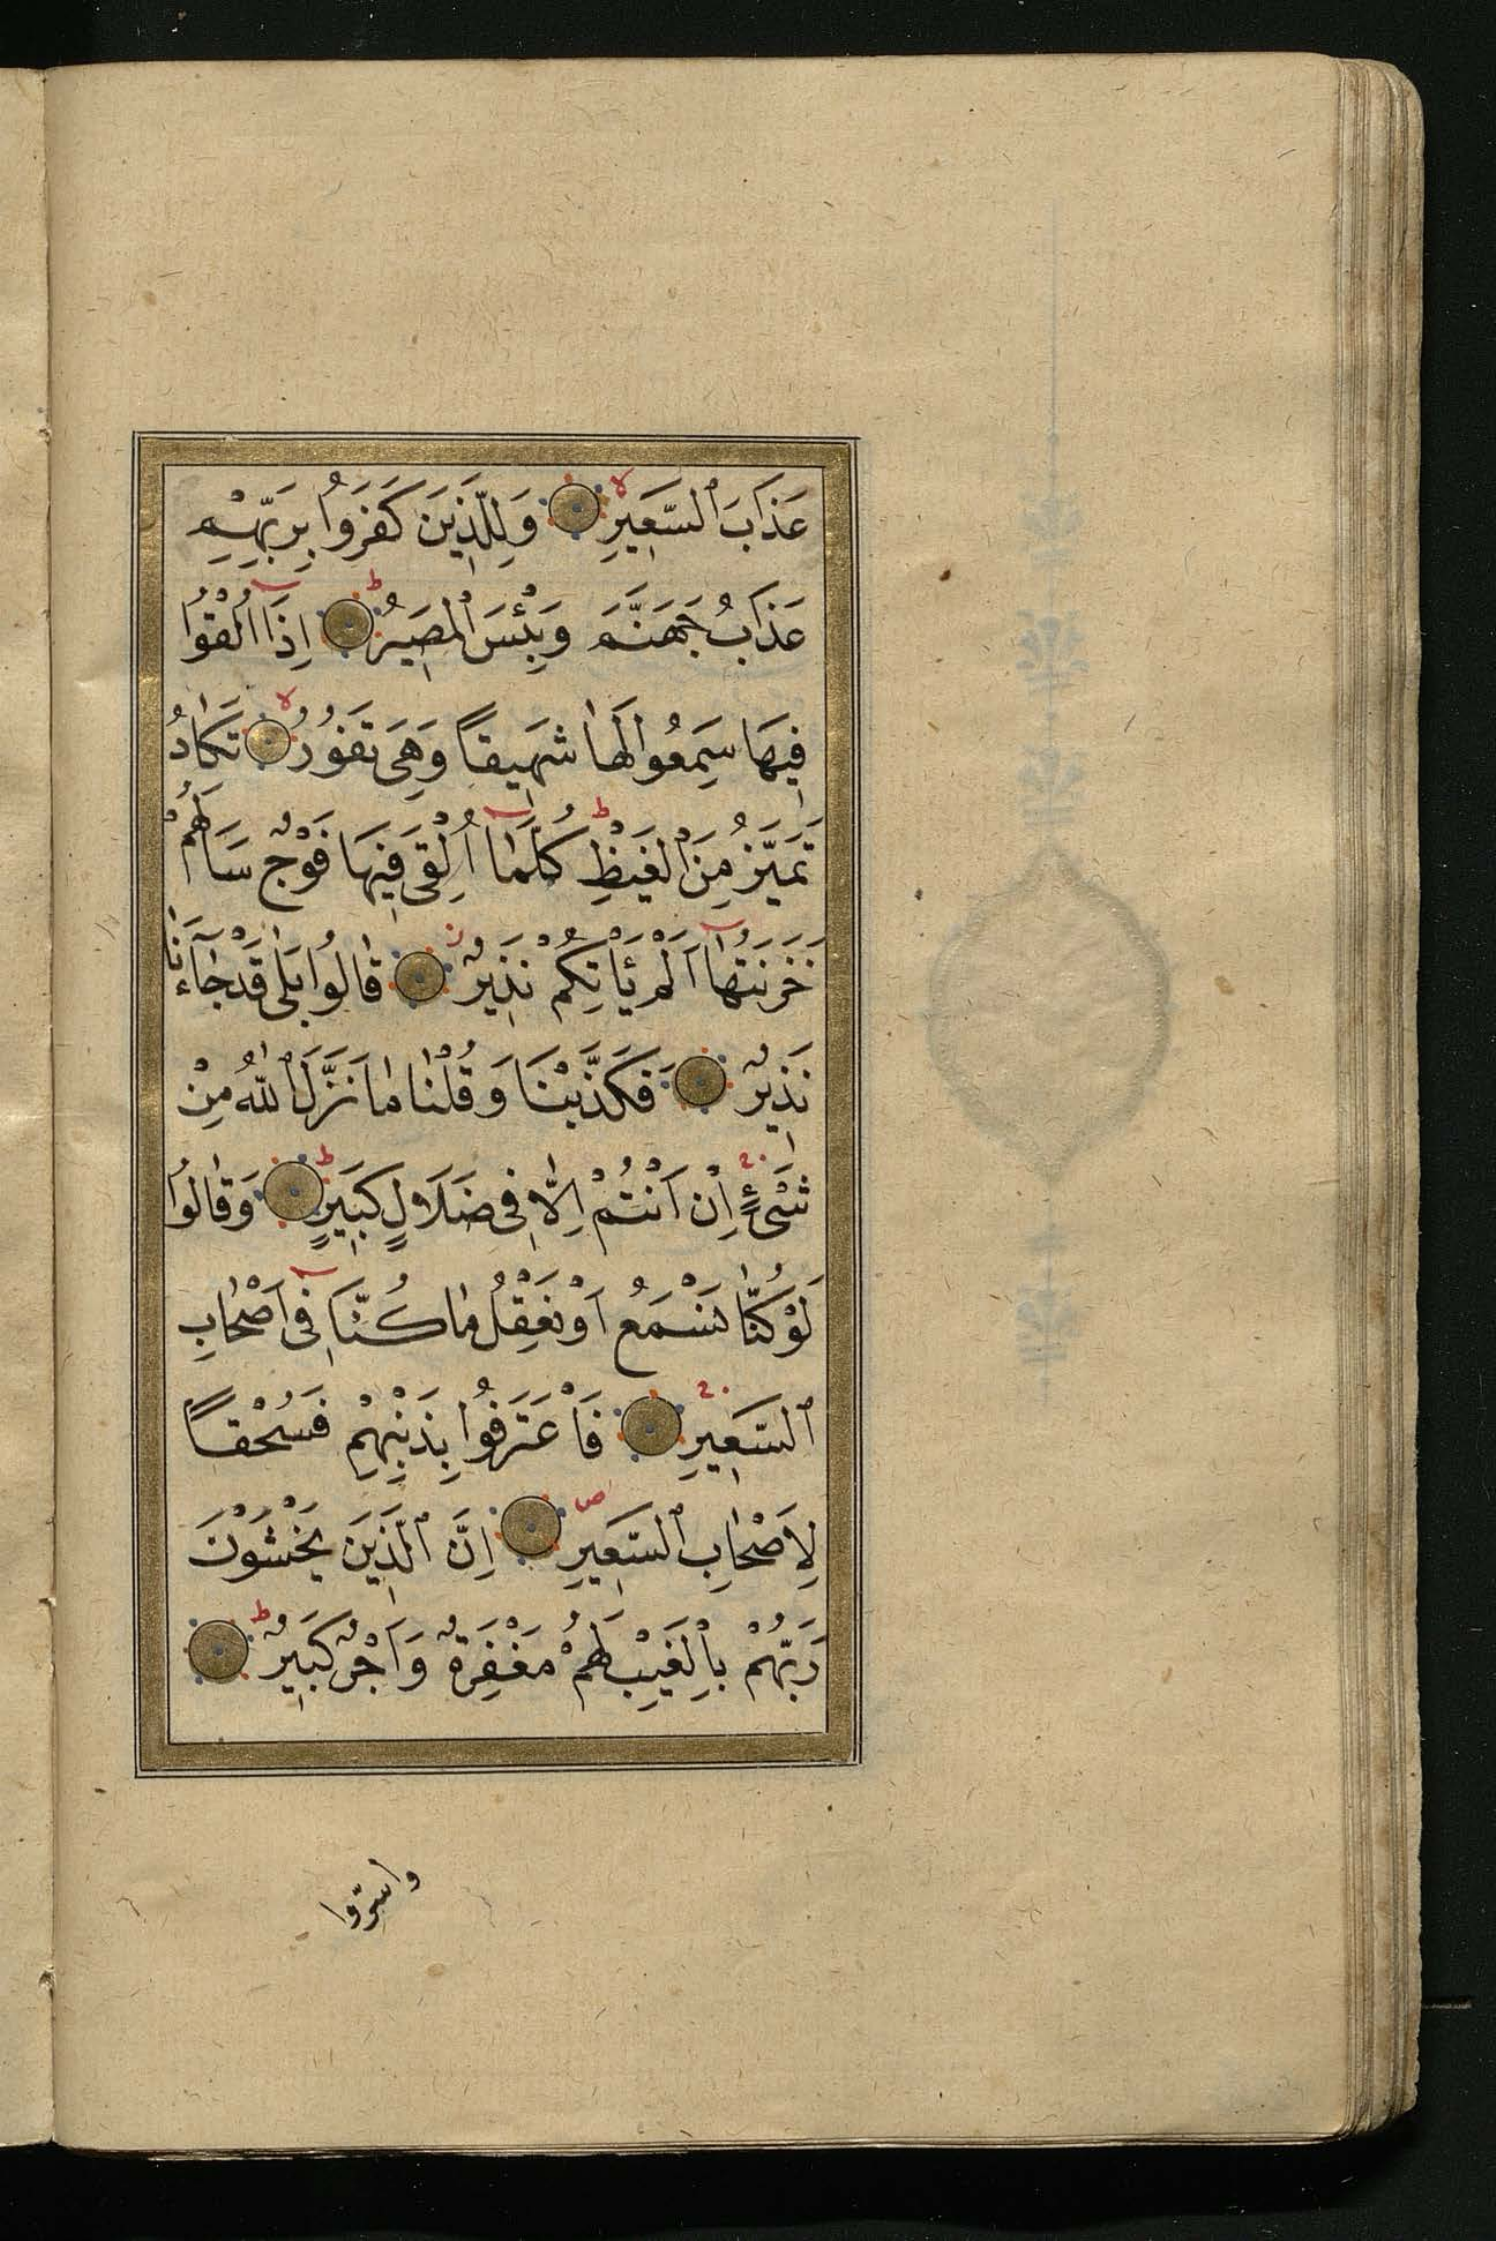 عَذَابَ ٱلسَّعِيرِ وَلِلَّذِينَ كَفَرُوا بِرَبِّهِمْ
عَذَابُ جَهَنَّمَ وَبِئْسَ ٱلْمَصِيرُ اِذَا اُلْقُوا
فِيهَا سَمِعُوا لَهَا شَهِيقًا وَهِيَ تَفُورُ تَكَادُ
تَمَيَّزُ مِنَ ٱلْغَيْظِ كُلَّمَا اُلْقِيَ فِيهَا فَوْجٌ سَاَلَهُمْ
خَزَنَتُهَا اَلَمْ يَاْتِكُمْ نَذِيرٌ قَالُوا بَلَى قَدْ جَاءَنَا
نَذِيرٌ فَكَذَّبْنَا وَقُلْنَا مَا نَزَّلَ ٱللّٰهُ مِنْ
شَيْءٍ اِنْ اَنْتُمْ اِلَّا فِي ضَلَالٍ كَبِيرٍ وَقَالُوا
لَوْ كُنَّا نَسْمَعُ اَوْ نَعْقِلُ مَا كُنَّا فِي اَصْحَابِ
ٱلسَّعِيرِ فَاعْتَرَفُوا بِذَنْبِهِمْ فَسُحْقًا
لِاَصْحَابِ ٱلسَّعِيرِ اِنَّ ٱلَّذِينَ يَخْشَوْنَ
رَبَّهُمْ بِالْغَيْبِ لَهُمْ مَغْفِرَةٌ وَاَجْرٌ كَبِيرٌ
واسرّوا